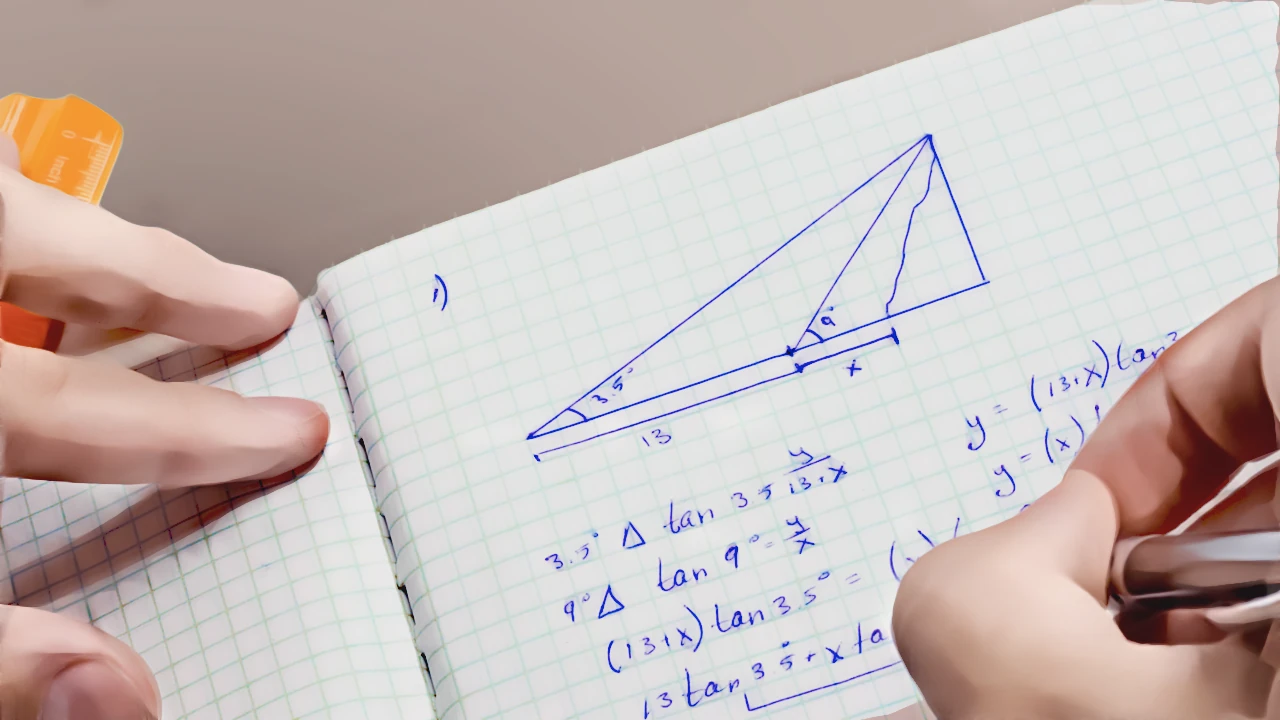 0
inch
1)
3.5°
9°
x
13
3.5° Δ tan 3.5 y/13+x
9° Δ tan 9° = y/x
(13+x) tan 3.5° =
13 tan 3.5 + x ta
y = (13+x) tan 3
y = (x)